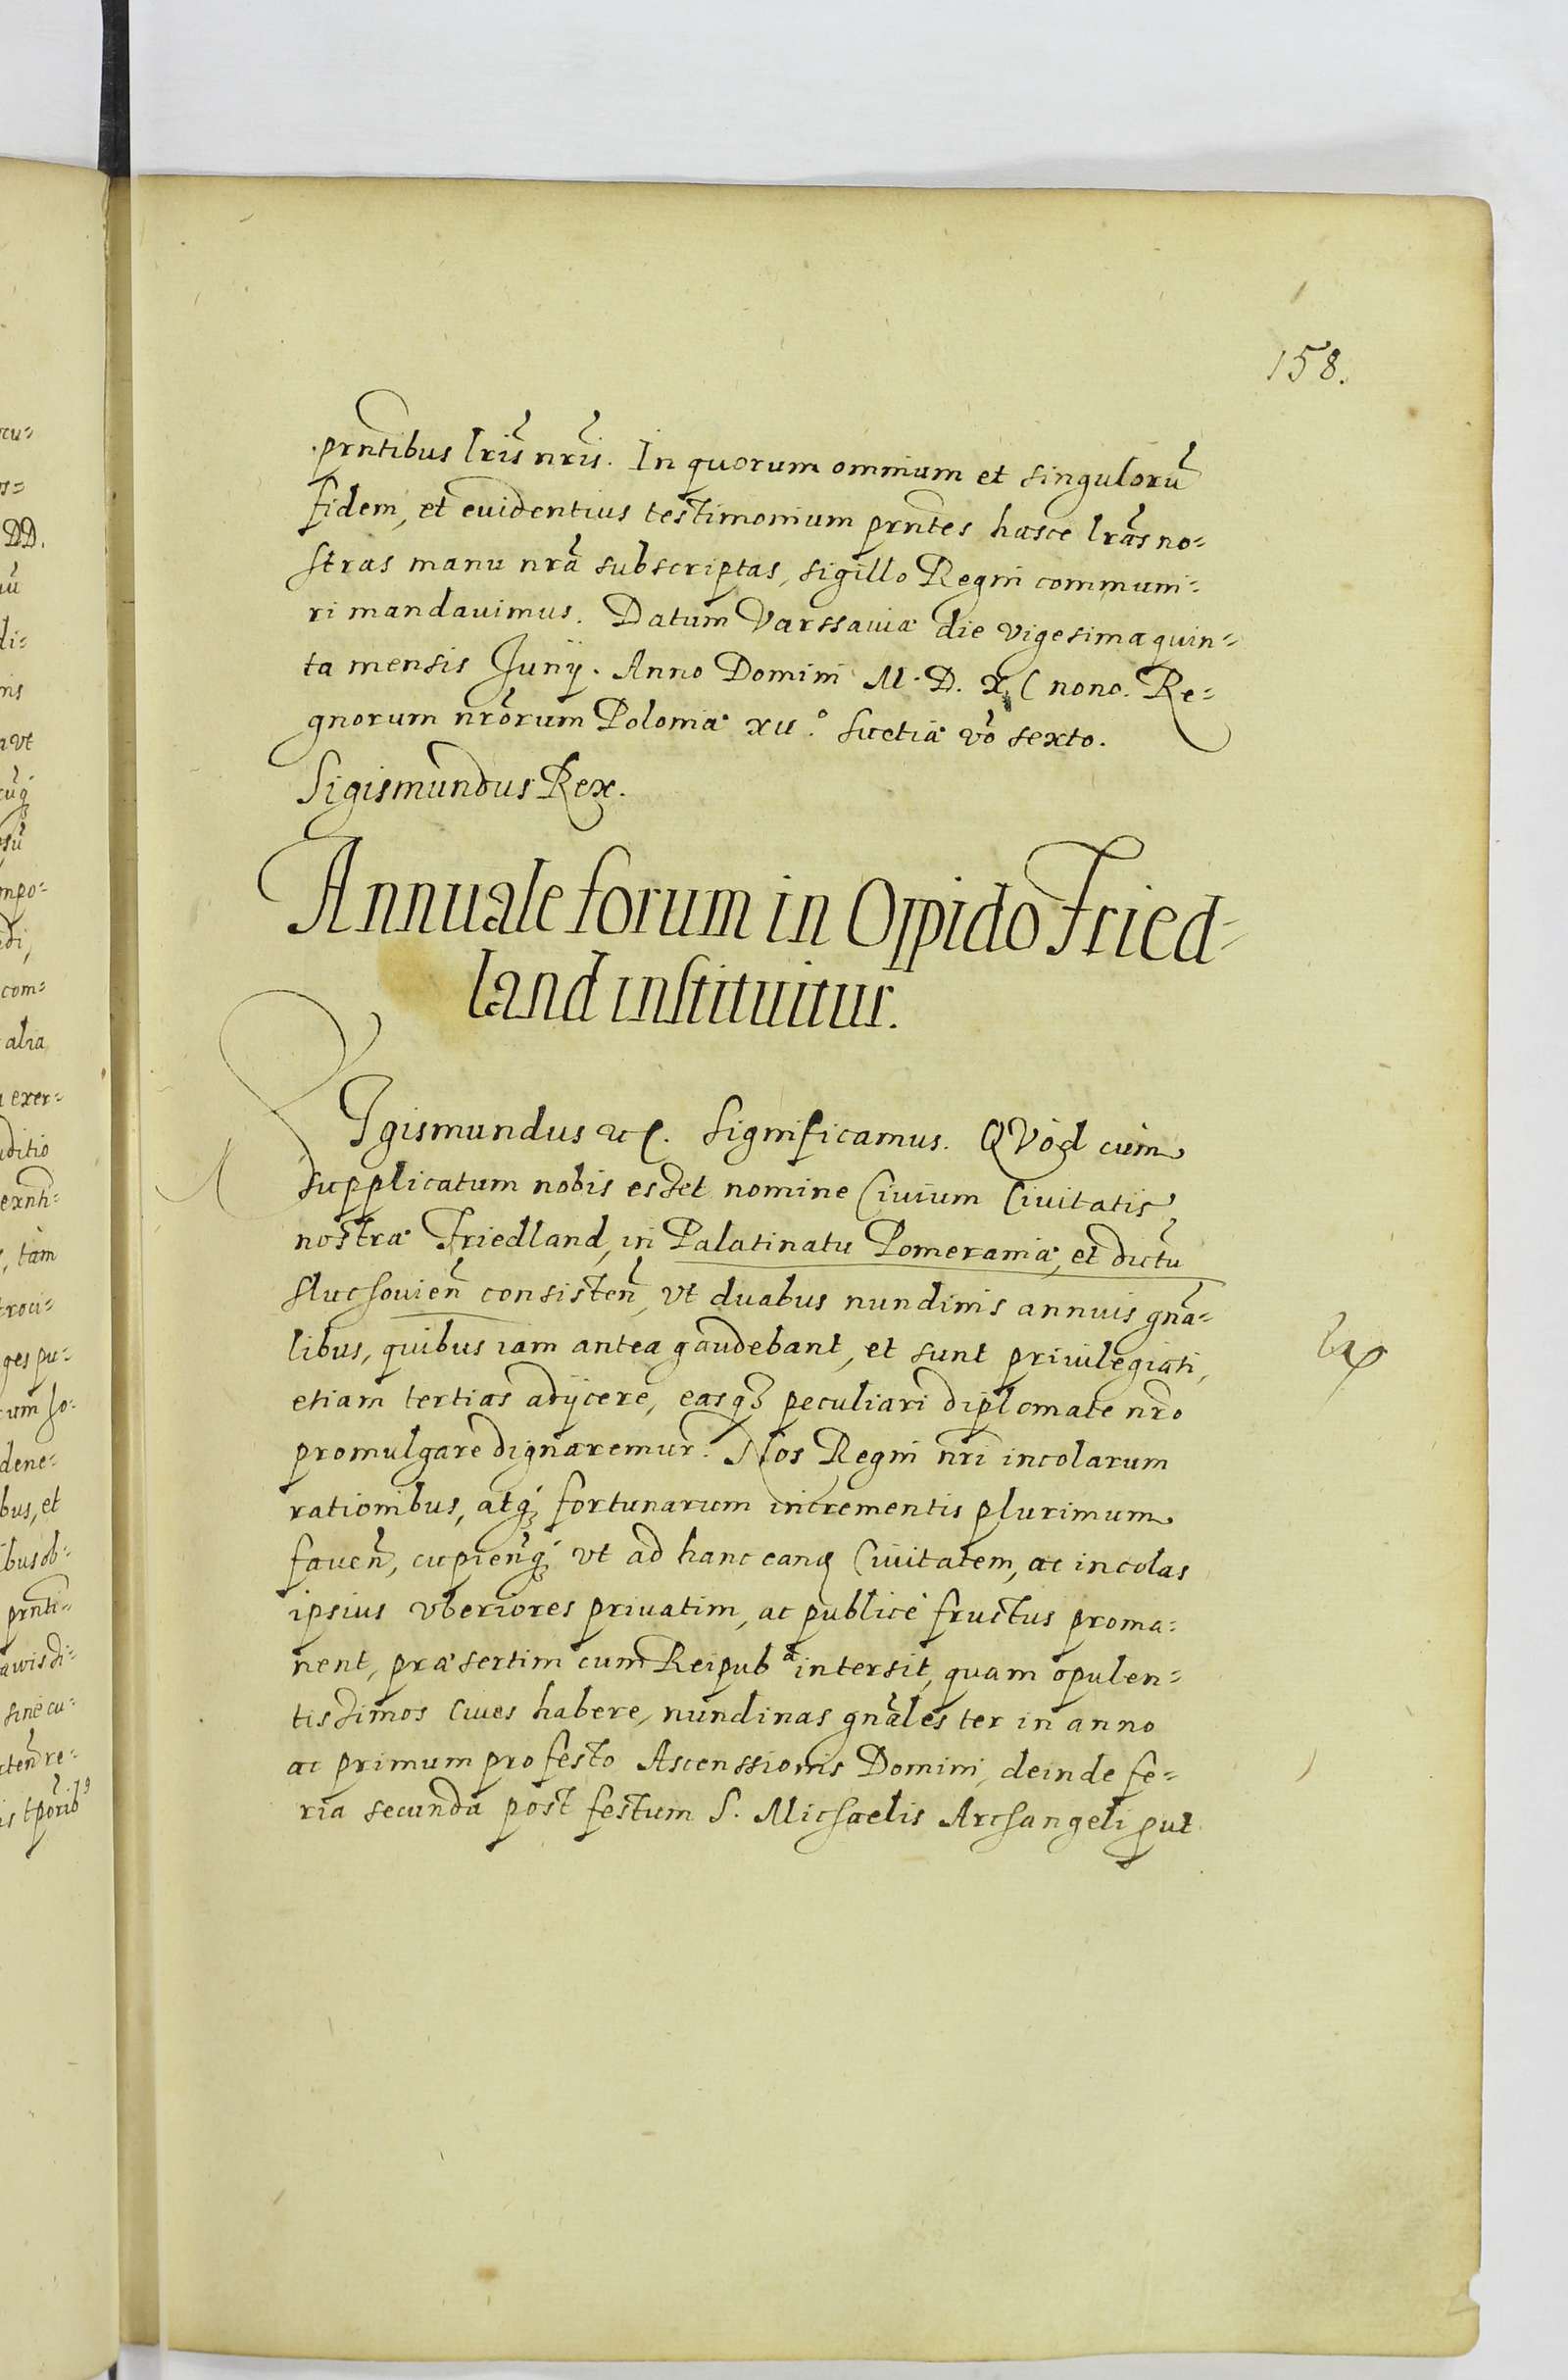 158.
prntibus lris nris. In quorum omnium et singuloru
fidem, et euidentius testimonium prntes hasce lras no=
stras manu nra subscriptas, sigillo Regni communi=
ri mandauimus. Datum Varssauiæ die vigesima quin=
ta mensis Junij. Anno Domini M.D.XC nono. Re=
gnorum nrorum Poloniæ xii.° Suetiæ vo sexto.
Sigismundus Rex.
Annuale forum in Oppido Fried=
land instituitur.
SIgismundus etc. Significamus. QVod cum
supplicatum nobis esset nomine Ciuium Ciuitatis
nostræ Friedland, in Palatinatu Pomeraniæ, et dictu
Sluchouien consisten, vt duabus nundinis annuis gna=
libus, quibus iam antea gaudebant, et sunt priuilegiati,
etiam tertias adijcere, easq3 peculiari diplomate nro
promulgare dignaremur. Nos Regni nri incolarum
rationibus, atq3 fortunarum incrementis plurimum
fauen, cupienq3 vt ad hanc eand Ciuitatem, ac incolas
ipsius vberiores priuatim, ac publicè fructus proma=
nent, præsertim cum Reipub intersit, quam opulen=
tissimos ciues habere, nundinas gnales ter in anno
ac primum pro festo Ascenssionis Domini, deinde fe=
ria secunda post festum S. Michaelis Archangeli, put